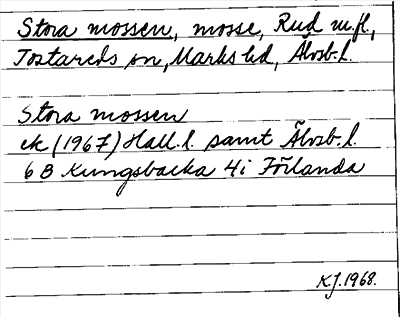 Stora mossen, mosse, Rud m.fl.,
Tostareds sn, Marks hd, Älvsb.l.
Stora mossen
ek (1967) Hall.l. samt Älvsb.l.
6 B Kungsbacka 4i Förlanda
KJ.1968.